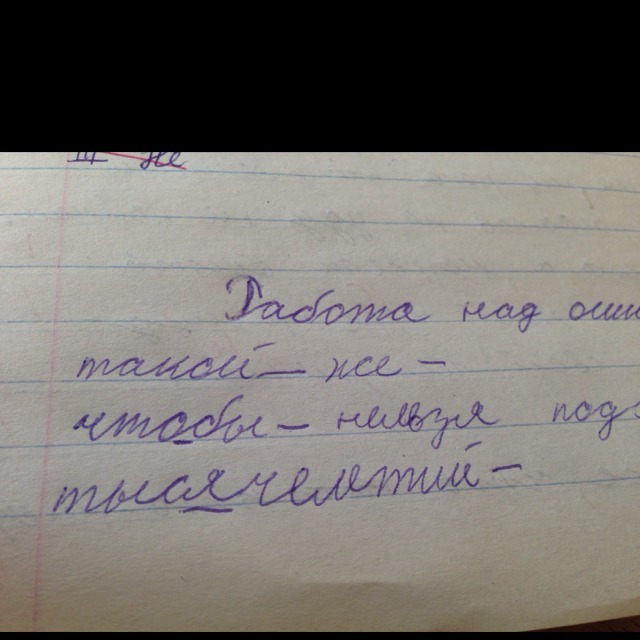 III же
Работа над оши
такой - же -
чтобы - нельзя под
тысячелетий -